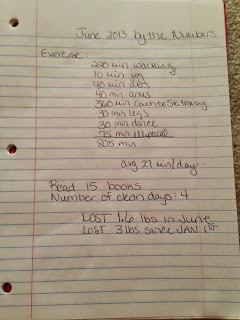 June 2013 by the Numbers
Exercise:
220 min walking
10 min jog
40 min abs
40 min arms
360 min Couch to 5k training
30 min legs
30 min dance
75 min elliptical
805 min
avg 27 min/day
Read 15 books
Number of clean days: 4
LOST 1.6 lbs in June
LOST 3 lbs since JAN 1ST